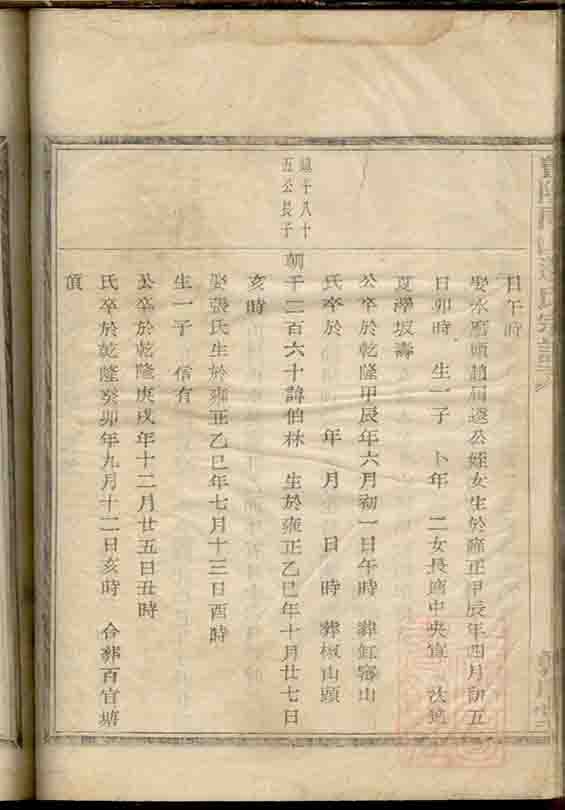 日午時
娶永
公姪女生於雍正甲辰年四月初五
日卯時 生一子 卜年 二女長適中央宣 次適
公卒於乾隆甲辰年六月初一日午時 葬缸窑山
氏卒於 年 月 日 時 葬椒山頭
千八十
五公長子
朝千二百六十諱伯林 生於雍正乙巳年十月廿七日
亥時
娶張氏生於雍正乙巳年七月十三日酉時
生一子 信有
公卒於乾隆庚戌年十二月廿五日丑時
氏卒於乾隆癸卯年九月十二日亥時 合葬百官塘
頂